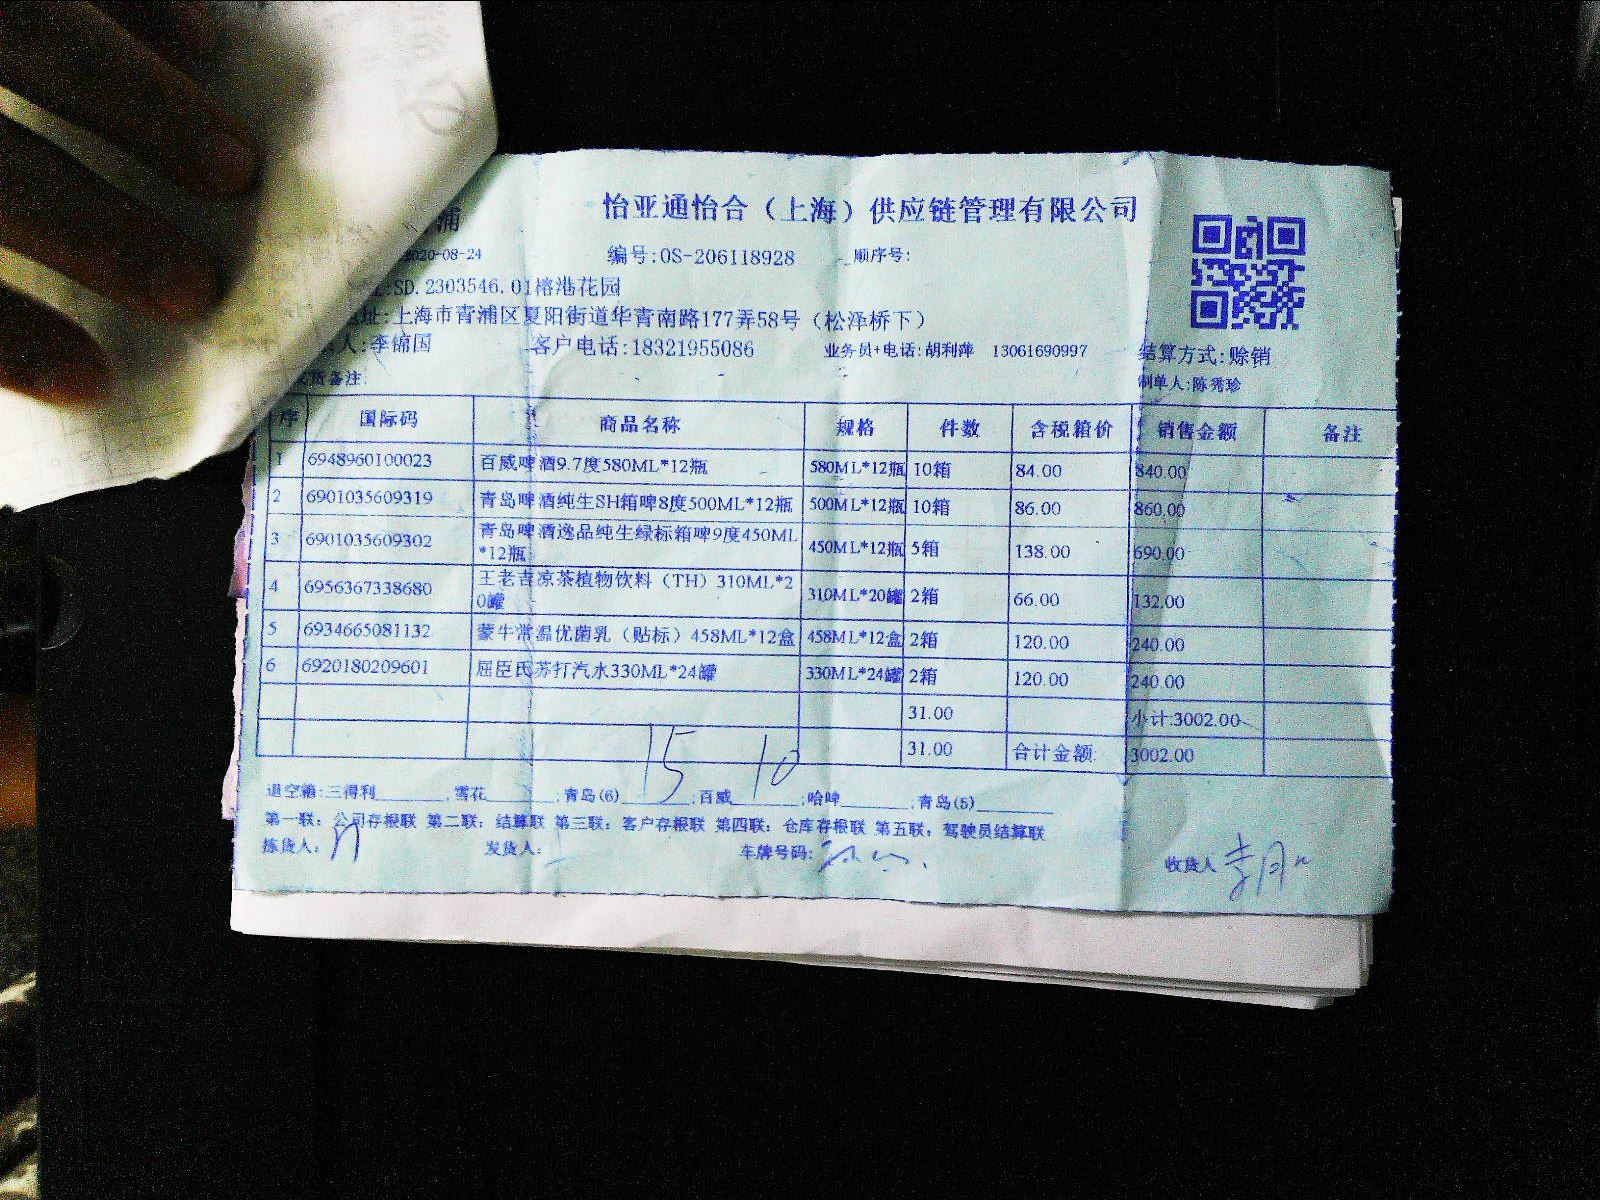 怡亚通怡合（上海）供应链管理有限公司
浦
2020-08-24 编号:OS-206118928 顺序号:
:SD.2303546.01榕港花园
址:上海市青浦区夏阳街道华青南路177弄58号（松泽桥下）
人:李锦国 客户电话:18321955086 业务员+电话:胡利萍 13061690997 结算方式:赊销
货备注: 制单人:陈秀珍
序 国际码 商品名称 规格 件数 含税箱价 销售金额 备注
1 6948960100023 百威啤酒9.7度580ML*12瓶 580ML*12瓶 10箱 84.00 840.00
2 6901035609319 青岛啤酒纯生SH箱啤8度500ML*12瓶 500ML*12瓶 10箱 86.00 860.00
3 6901035609302 青岛啤酒逸品纯生绿标箱啤9度450ML*12瓶 450ML*12瓶 5箱 138.00 690.00
4 6956367338680 王老吉凉茶植物饮料（TH）310ML*20罐 310ML*20罐 2箱 66.00 132.00
5 6934665081132 蒙牛常温优菌乳（贴标）458ML*12盒 458ML*12盒 2箱 120.00 240.00
6 6920180209601 屈臣氏苏打汽水330ML*24罐 330ML*24罐 2箱 120.00 240.00
31.00 小计:3002.00
31.00 合计金额: 3002.00
退空箱:三得利______,雪花______;青岛(6) 15;百威 10;哈啤______;青岛(5)______
第一联：公司存根联 第二联：结算联 第三联：客户存根联 第四联：仓库存根联 第五联：驾驶员结算联
拣货人: 发货人: 车牌号码: 收货人